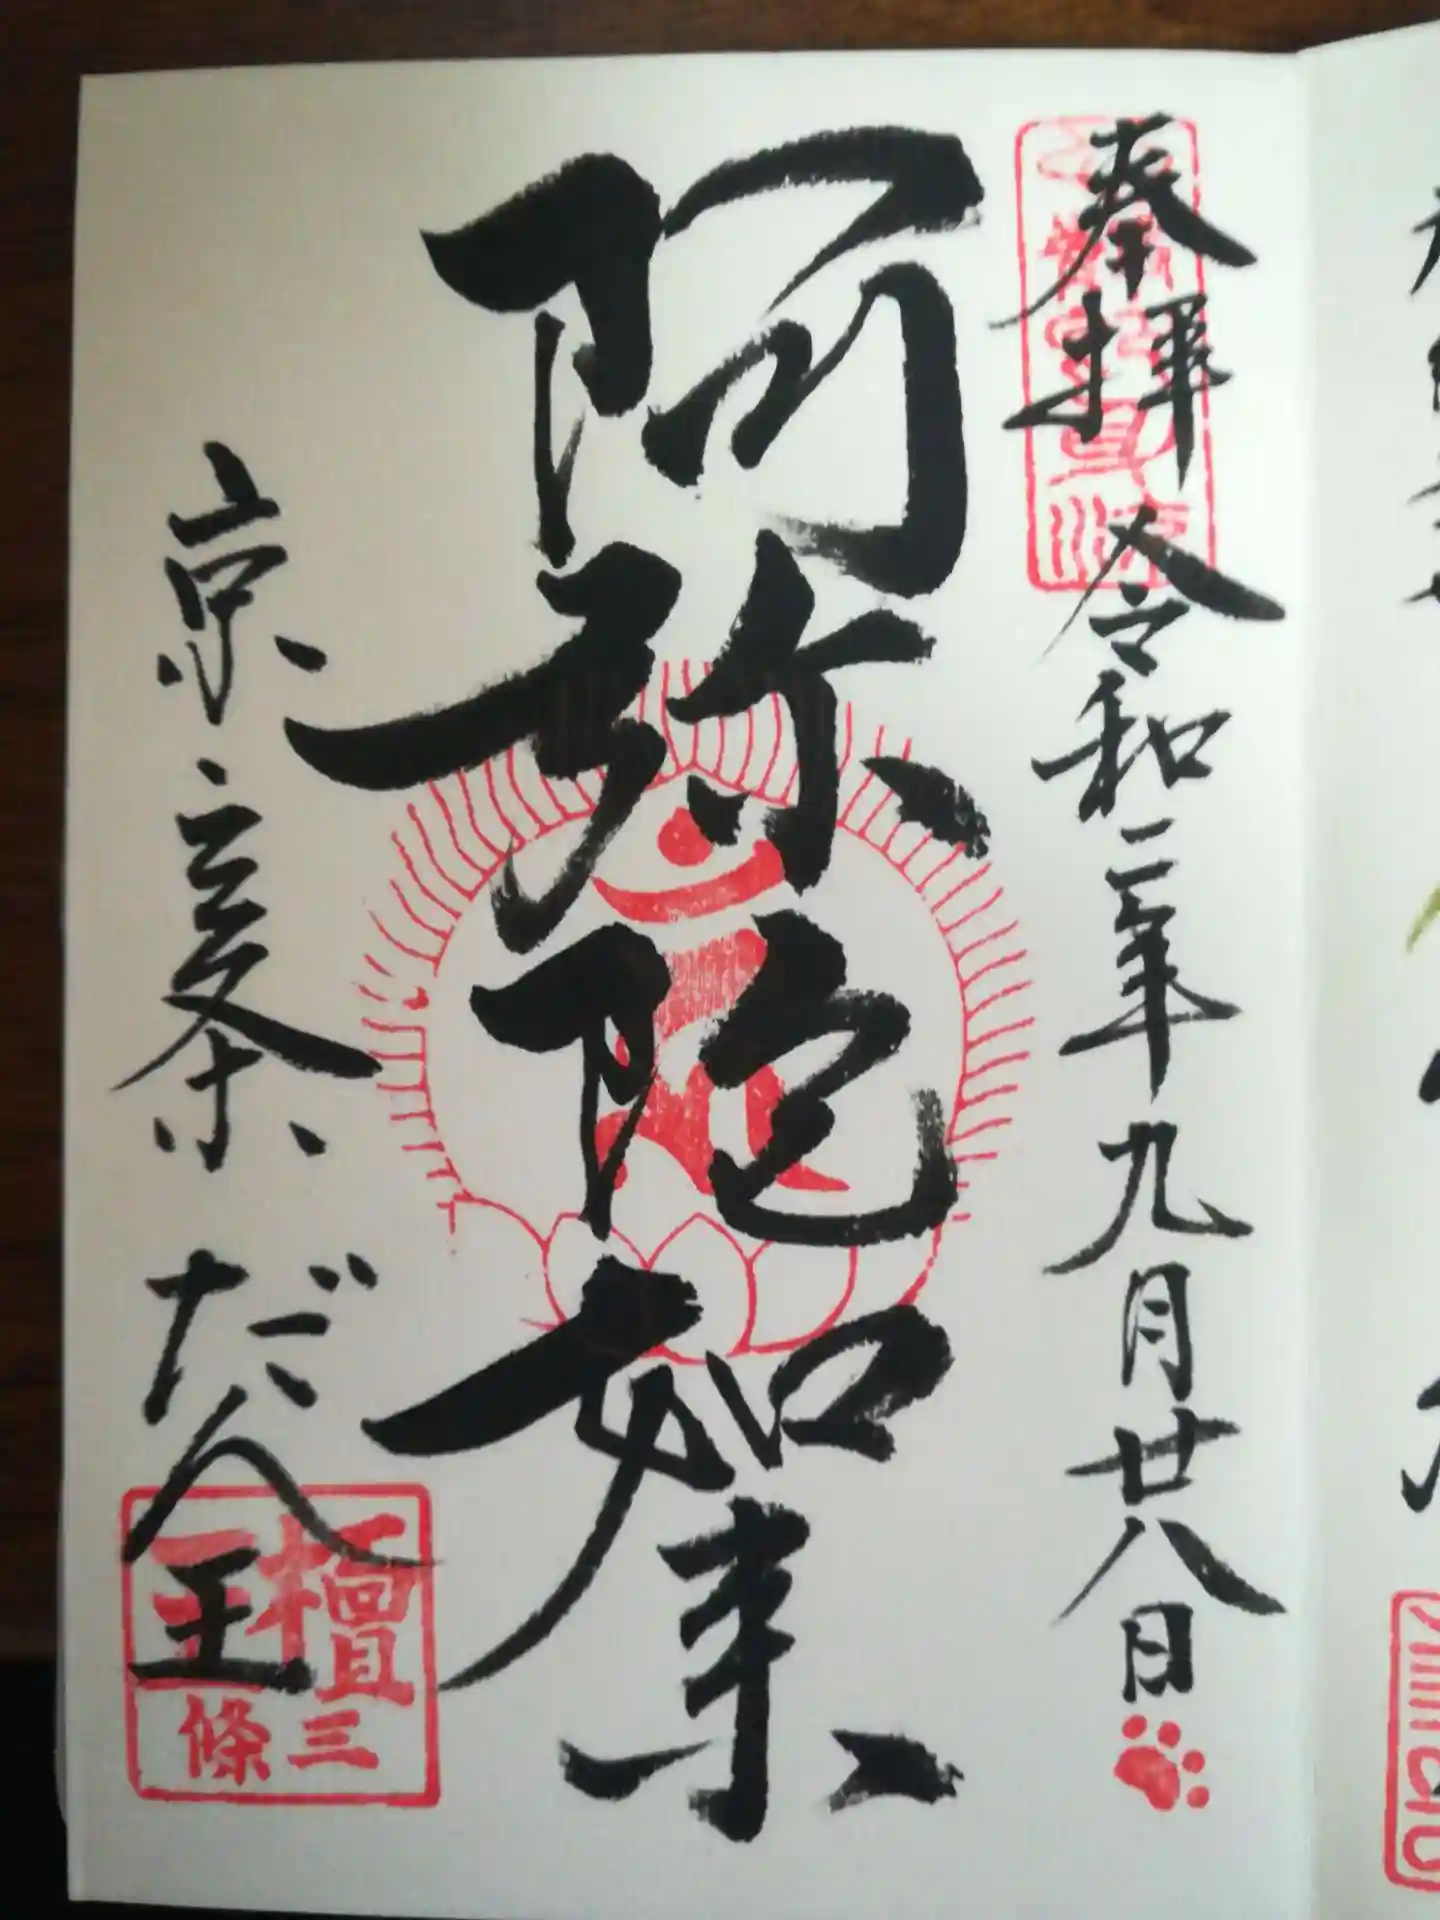 奉拝 令和二年九月廿八日
阿弥陀如来
京三条 だん王
檀王
三條